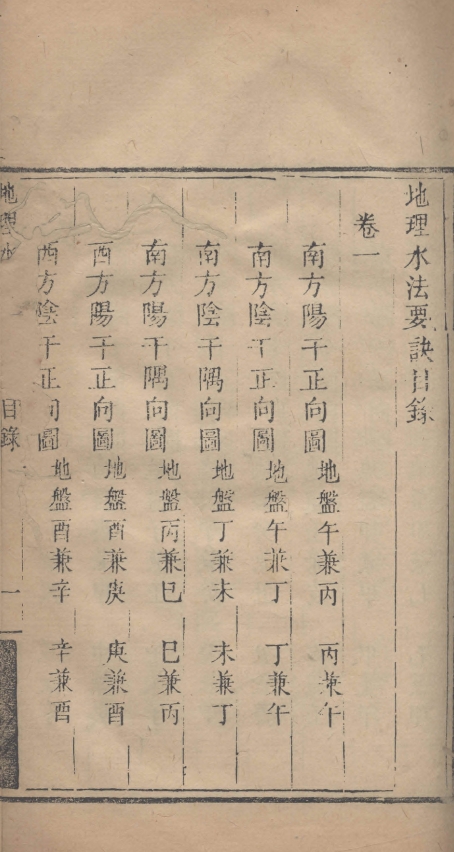 地理水法要訣目錄
卷一
南方陽干正向圖 地盤午兼丙 丙兼午
南方陰干正向圖 地盤午兼丁 丁兼午
南方陰干隅向圖 地盤丁兼未 未兼丁
南方陽干隅向圖 地盤丙兼巳 巳兼丙
西方陽干正向圖 地盤酉兼庚 庚兼酉
西方陰干正向圖 地盤酉兼辛 辛兼酉
地理水 目錄 一